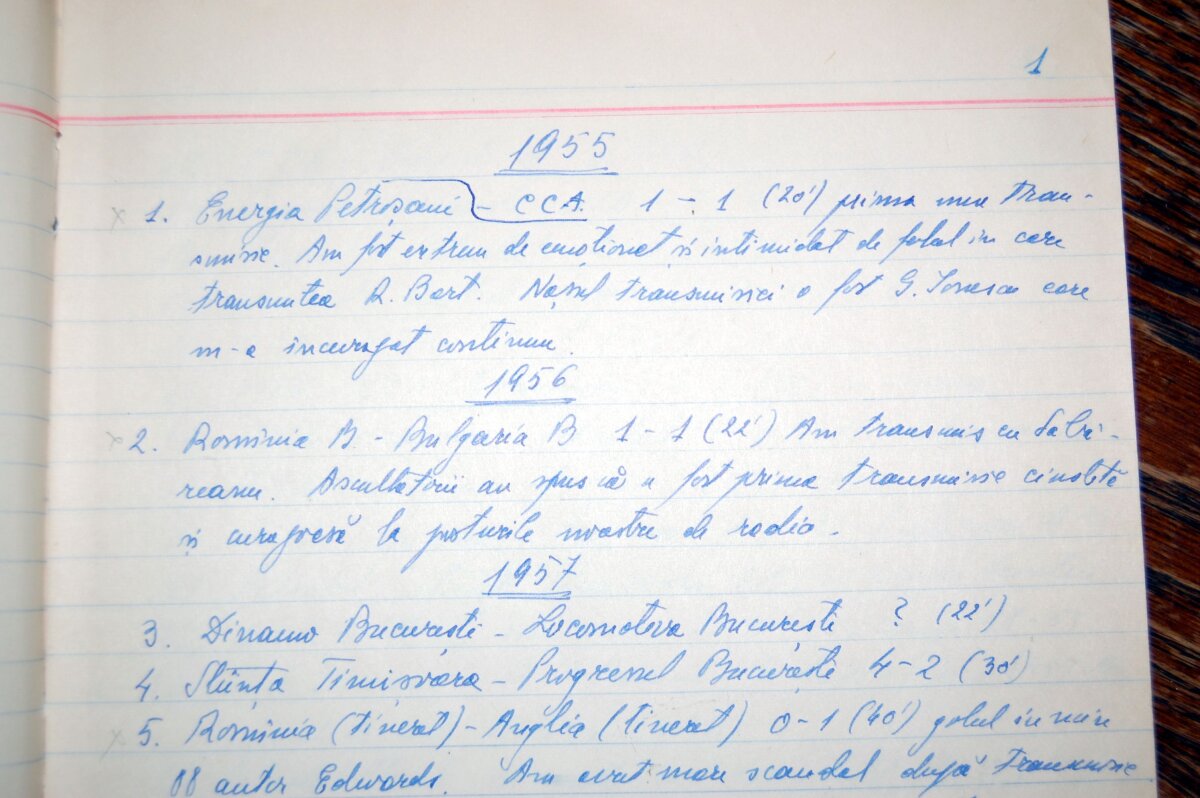 1
1955
x 1. Energia Petroșani - CCA. 1 - 1 (20') prima mea tran-
smisie. Am fost extrem de emoționat și intimidat de felul in care
transmitea R. Bart. Nașul transmisiei a fost G. Ionescu care
m-a incurajat continuu.
1956
x 2. Rominia B. - Bulgaria B 1 - 1 (22') Am transmis cu
Ascultătorii au spus că a fost prima transmisie cinstită
și curagoasă la posturile noastre de radio.
1957
3. Dinamo București - Locomotiva București ? (22')
4. Stiința Timisoara - Progresul București 4-2 (30')
x 5. Rominia (tineret) - Anglia (tineret) 0-1 (40') golul in min
88 autor Edwards. Am avut mare scandal după transmisie